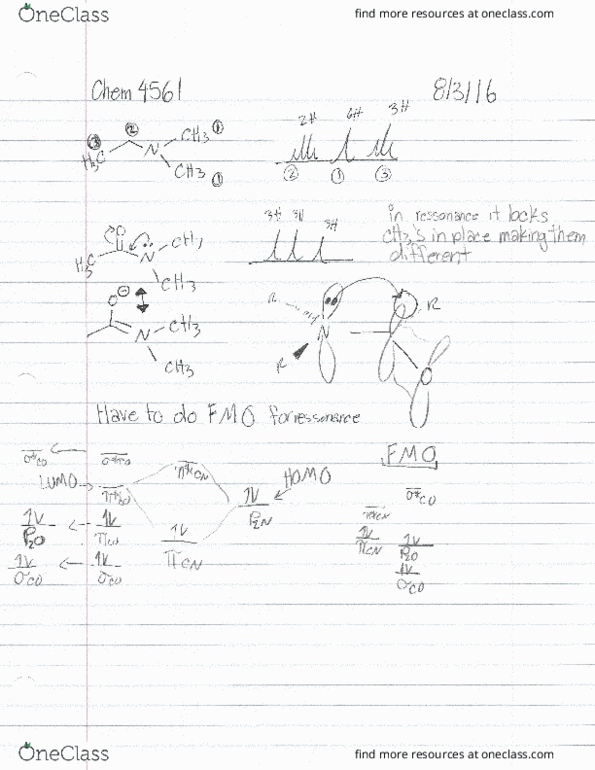 OneClass
find more resources at oneclass.com
Chem 4561
8/3/16
③ ② CH3 ①
H3C N
CH3 ①
2H 6H 3H
② ① ③
O
CH3
H3C N
CH3
3H 3H 3H
in ressonance it locks
CH3's in place making them
different
O⊖
N CH3
CH3
R
R
N
R
Have to do FMO for ressonance
σ*CO σ*CO π*CN
LUMO
HOMO
PZN
PZO
πCN
σCO σCO
FMO
σ*CO
π*CN
πCN
PZO
σCO
OneClass
find more resources at oneclass.com